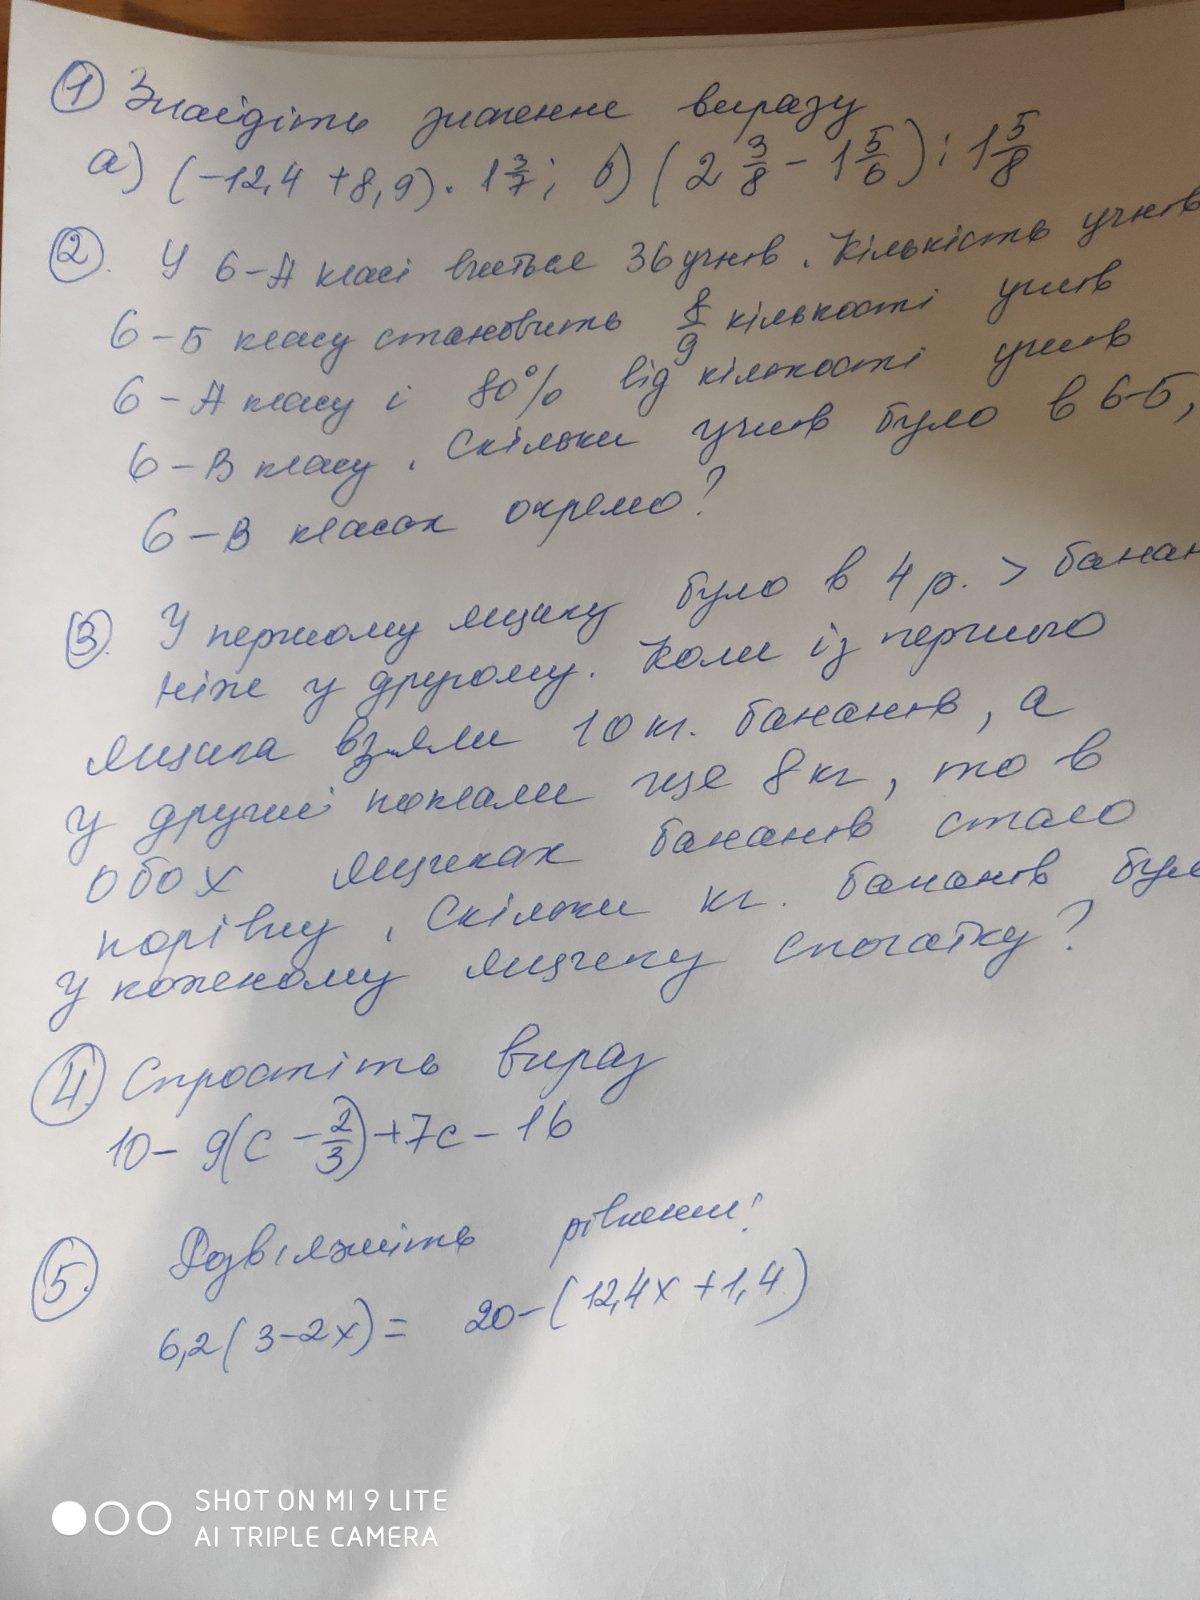 1 Знайдіть значення виразу
а) (-12,4 + 8,9) · 1 3/7; б) (2 3/8 - 1 5/6) : 1 5/8
2. У 6-А класі вчиться 36 учнів. Кількість учнів
6-Б класу становить 8/9 кількості учнів
6-А класу і 80% від кількості учнів
6-В класу. Скільки учнів було в 6-Б,
6-В класах окремо?
3. У першому ящику було в 4 р. > банан
ніж у другому. Коли із першого
ящика взяли 10 кг. бананів, а
у другий поклали ще 8 кг, то в
обох ящиках бананів стало
порівну. Скільки кг. бананів бул
у кожному ящику спочатку?
4. Спростіть вираз
10 - 9(c - 2/3) + 7c - 16
5. Розв'яжіть рівняння:
6,2(3-2x) = 20-(12,4x + 1,4)
SHOT ON MI 9 LITE
AI TRIPLE CAMERA